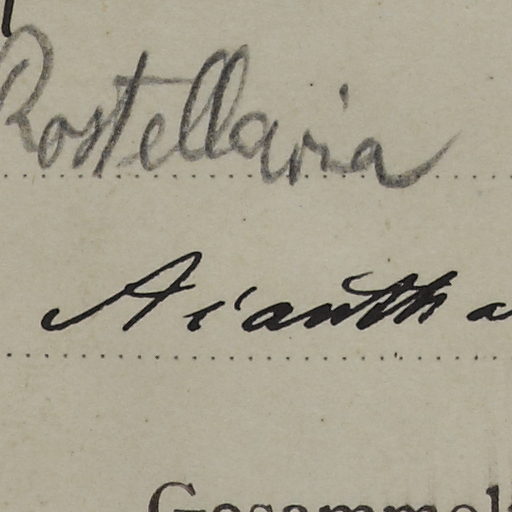 Rostellaria
Acantha
Gesammel